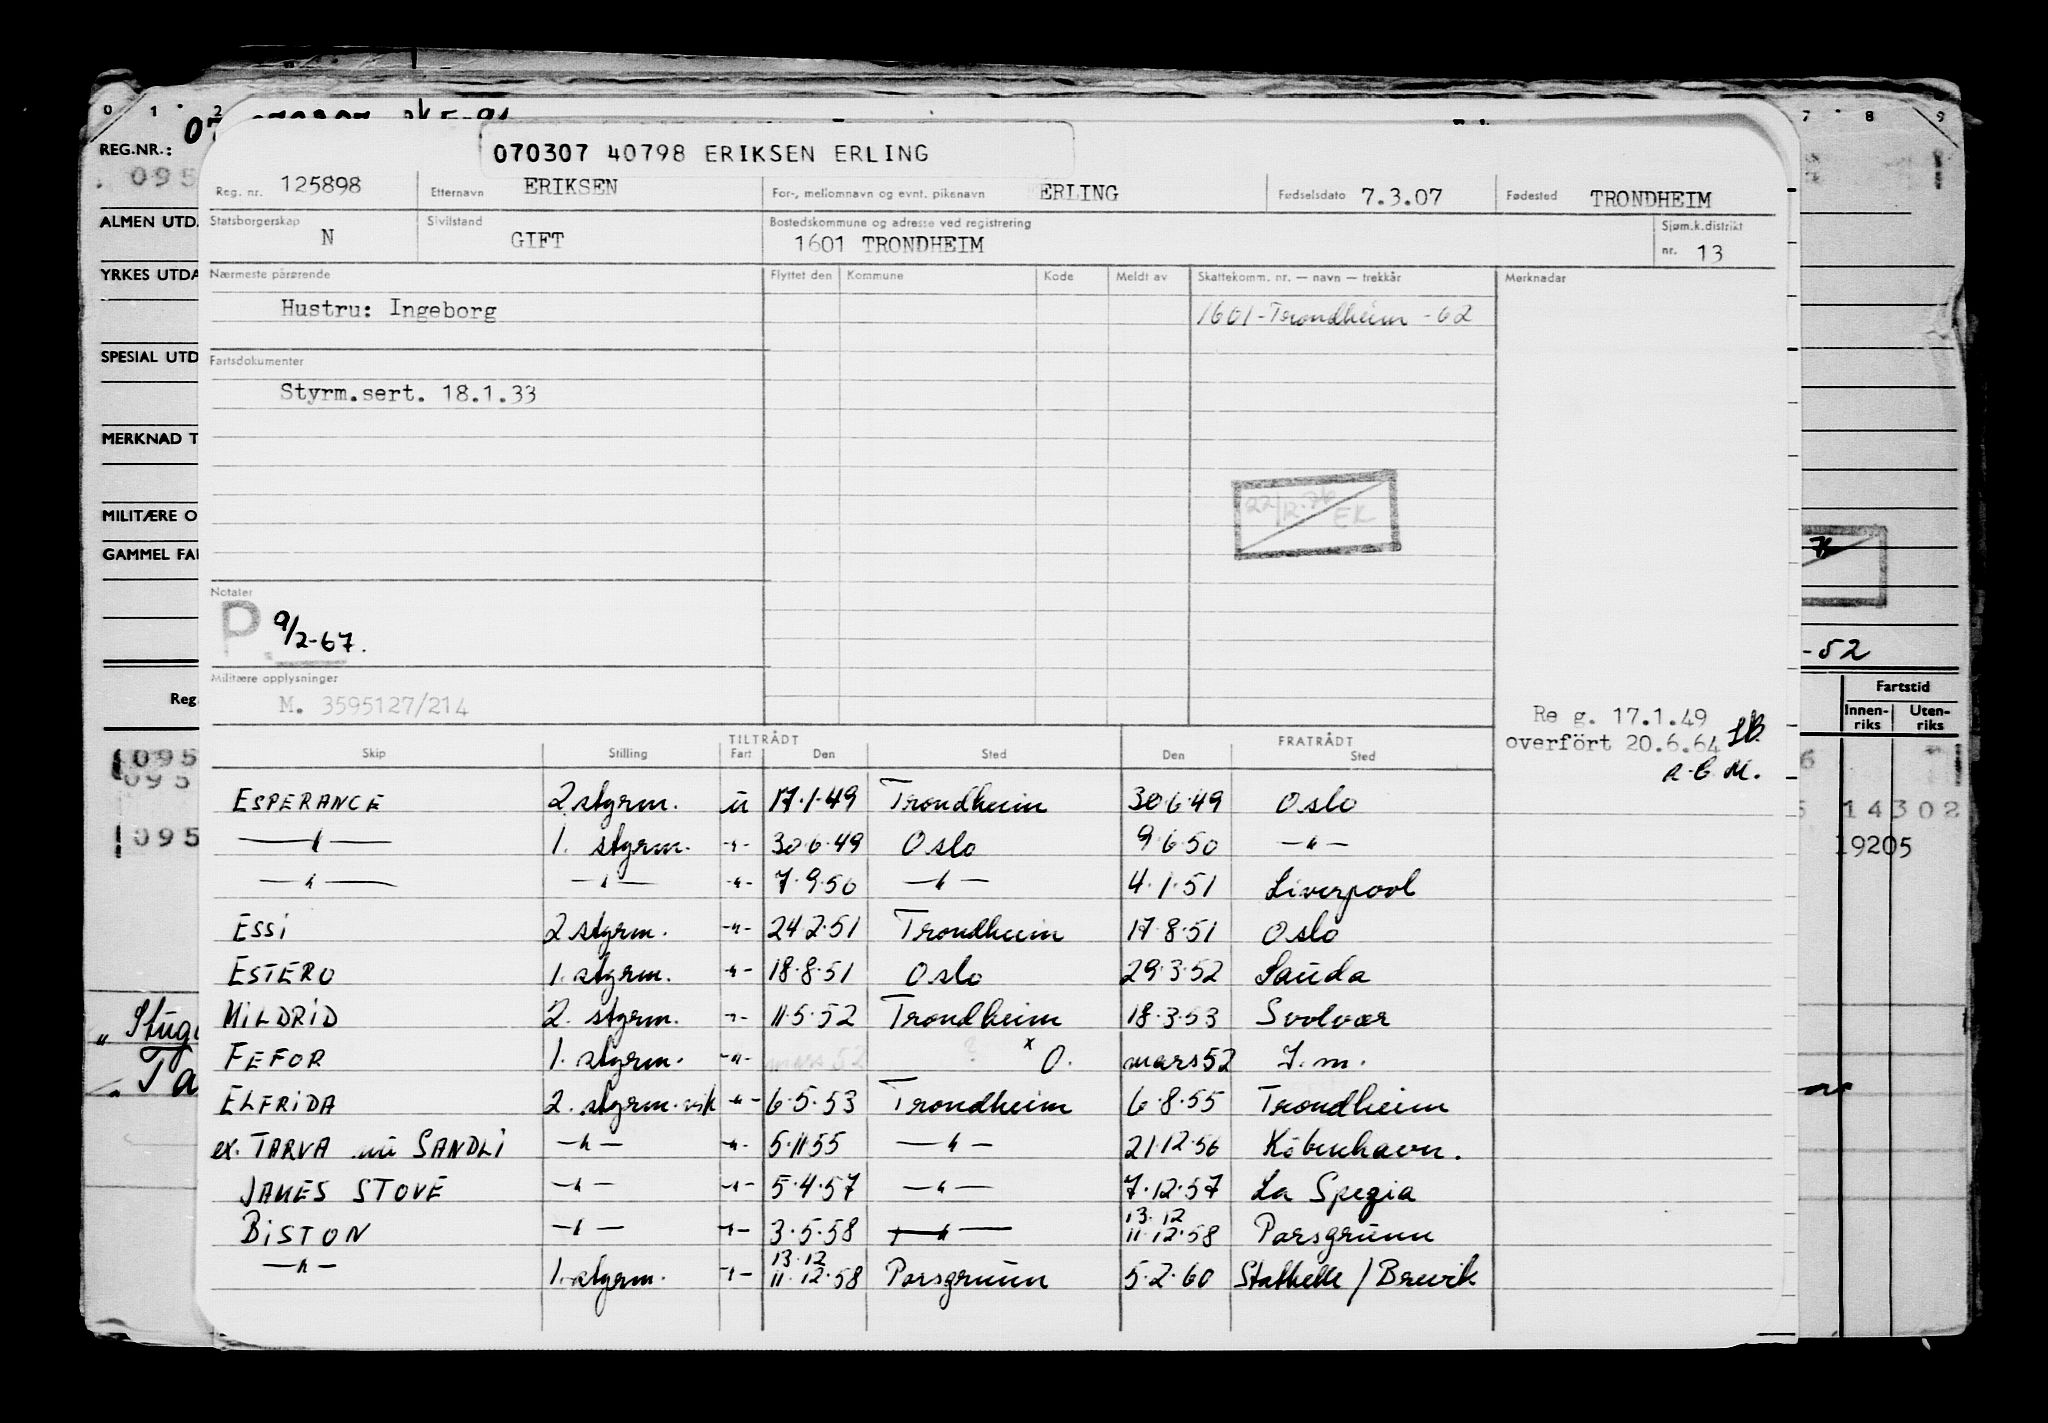 070307 40798 ERIKSEN ERLING
Reg. nr. 125898 Etternavn ERIKSEN For-, mellomnavn og evnt. pikenavn ERLING Fødselsdato 7.3.07 Fødested TRONDHEIM
Statsborgerskap N Sivilstand GIFT Bostedskommune og adresse ved registrering 1601 TRONDHEIM Sjøm.k.distrikt nr. 13
Nærmeste pårørende Flyttet den Kommune Kode Meldt av Skattekomm. nr. — navn — trekkår Merknader
Hustru: Ingeborg 1601-Trondheim -62
Fartsdokumenter
Styrm.sert. 18.1.33
22/12-76 EK
Notater
P 9/2-67.
Militære opplysninger
M. 3595127/214
Reg. 17.1.49
overført 20.6.64
TILTRÅDT FRATRÅDT
Skip Stilling Fart Den Sted Den Sted
ESPERANCE 2 styrm. u 17.1.49 Trondheim 30.6.49 Oslo
—"— 1. styrm. -"- 30.6.49 Oslo 9.6.50 —"—
—"— —"— -"- 7.9.50 —"— 4.1.51 Liverpool
ESSI 2 styrm. -"- 24.2.51 Trondheim 17.8.51 Oslo
ESTERO 1. styrm. -"- 18.8.51 Oslo 29.3.52 Sauda
MILDRID 2. styrm. -"- 11.5.52 Trondheim 18.3.53 Svolvær
FEFOR 1. styrm. -"- mars 52 ? x O. mars 52 I.m.
ELFRIDA 2. styrm. vik -"- 6.5.53 Trondheim 6.8.55 Trondheim
ex. TARVA nu SANDLI —"— -"- 5.11.55 —"— 21.12.56 København.
JAMES STOVE —"— -"- 5.4.57 —"— 7.12.57 La Spezia
BISTON —"— -"- 3.5.58 —"— 13.12 11.12.58 Porsgrunn
—"— 1. styrm. -"- 13.12 11.12.58 Porsgrunn 5.2.60 Stathelle / Brevik
0 1 2
REG.NR.: 07
095
ALMEN UTDA
YRKES UTDA
SPESIAL UTD
MERKNAD T
MILITÆRE O
GAMMEL FA
Reg
095
095
095
7 8 9
-52
Fartstid
Innen-riks Uten-riks
14302
19205